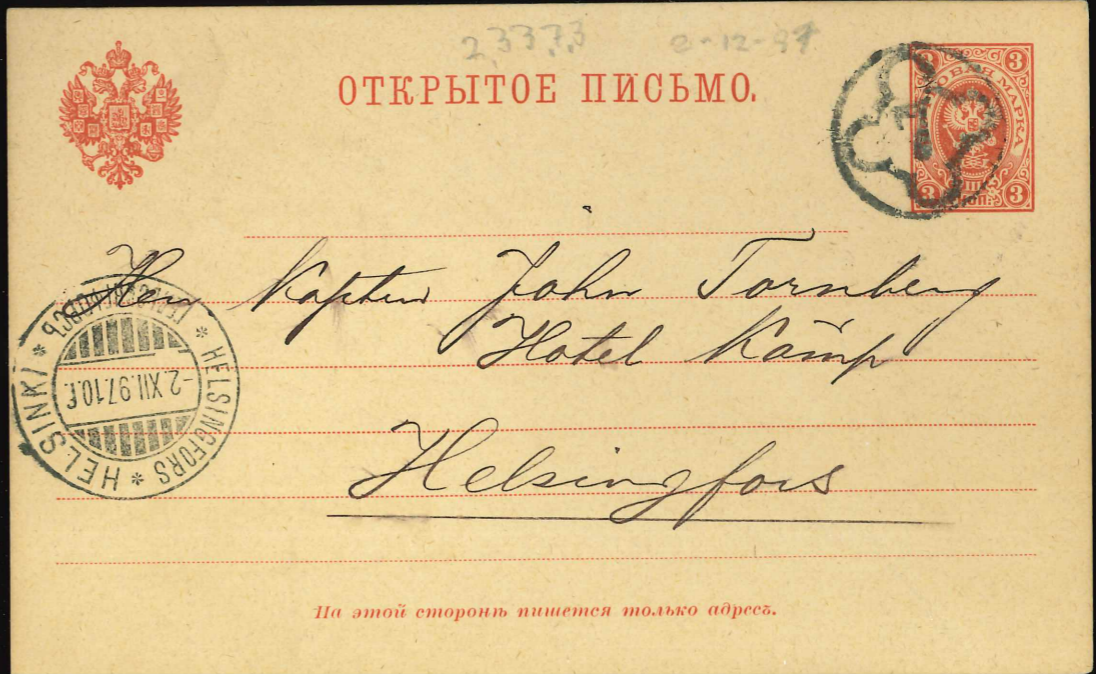 23373 2-12-97
ОТКРЫТОЕ ПИСЬМО.
3 3
МАРКА
3 3
Herr Kapten John Tornberg
Hotel Kämp
Helsingfors
HELSINKI * HELSINGFORS *
-2.XII.97.10.F.
На этой сторонѣ пишется только адресъ.